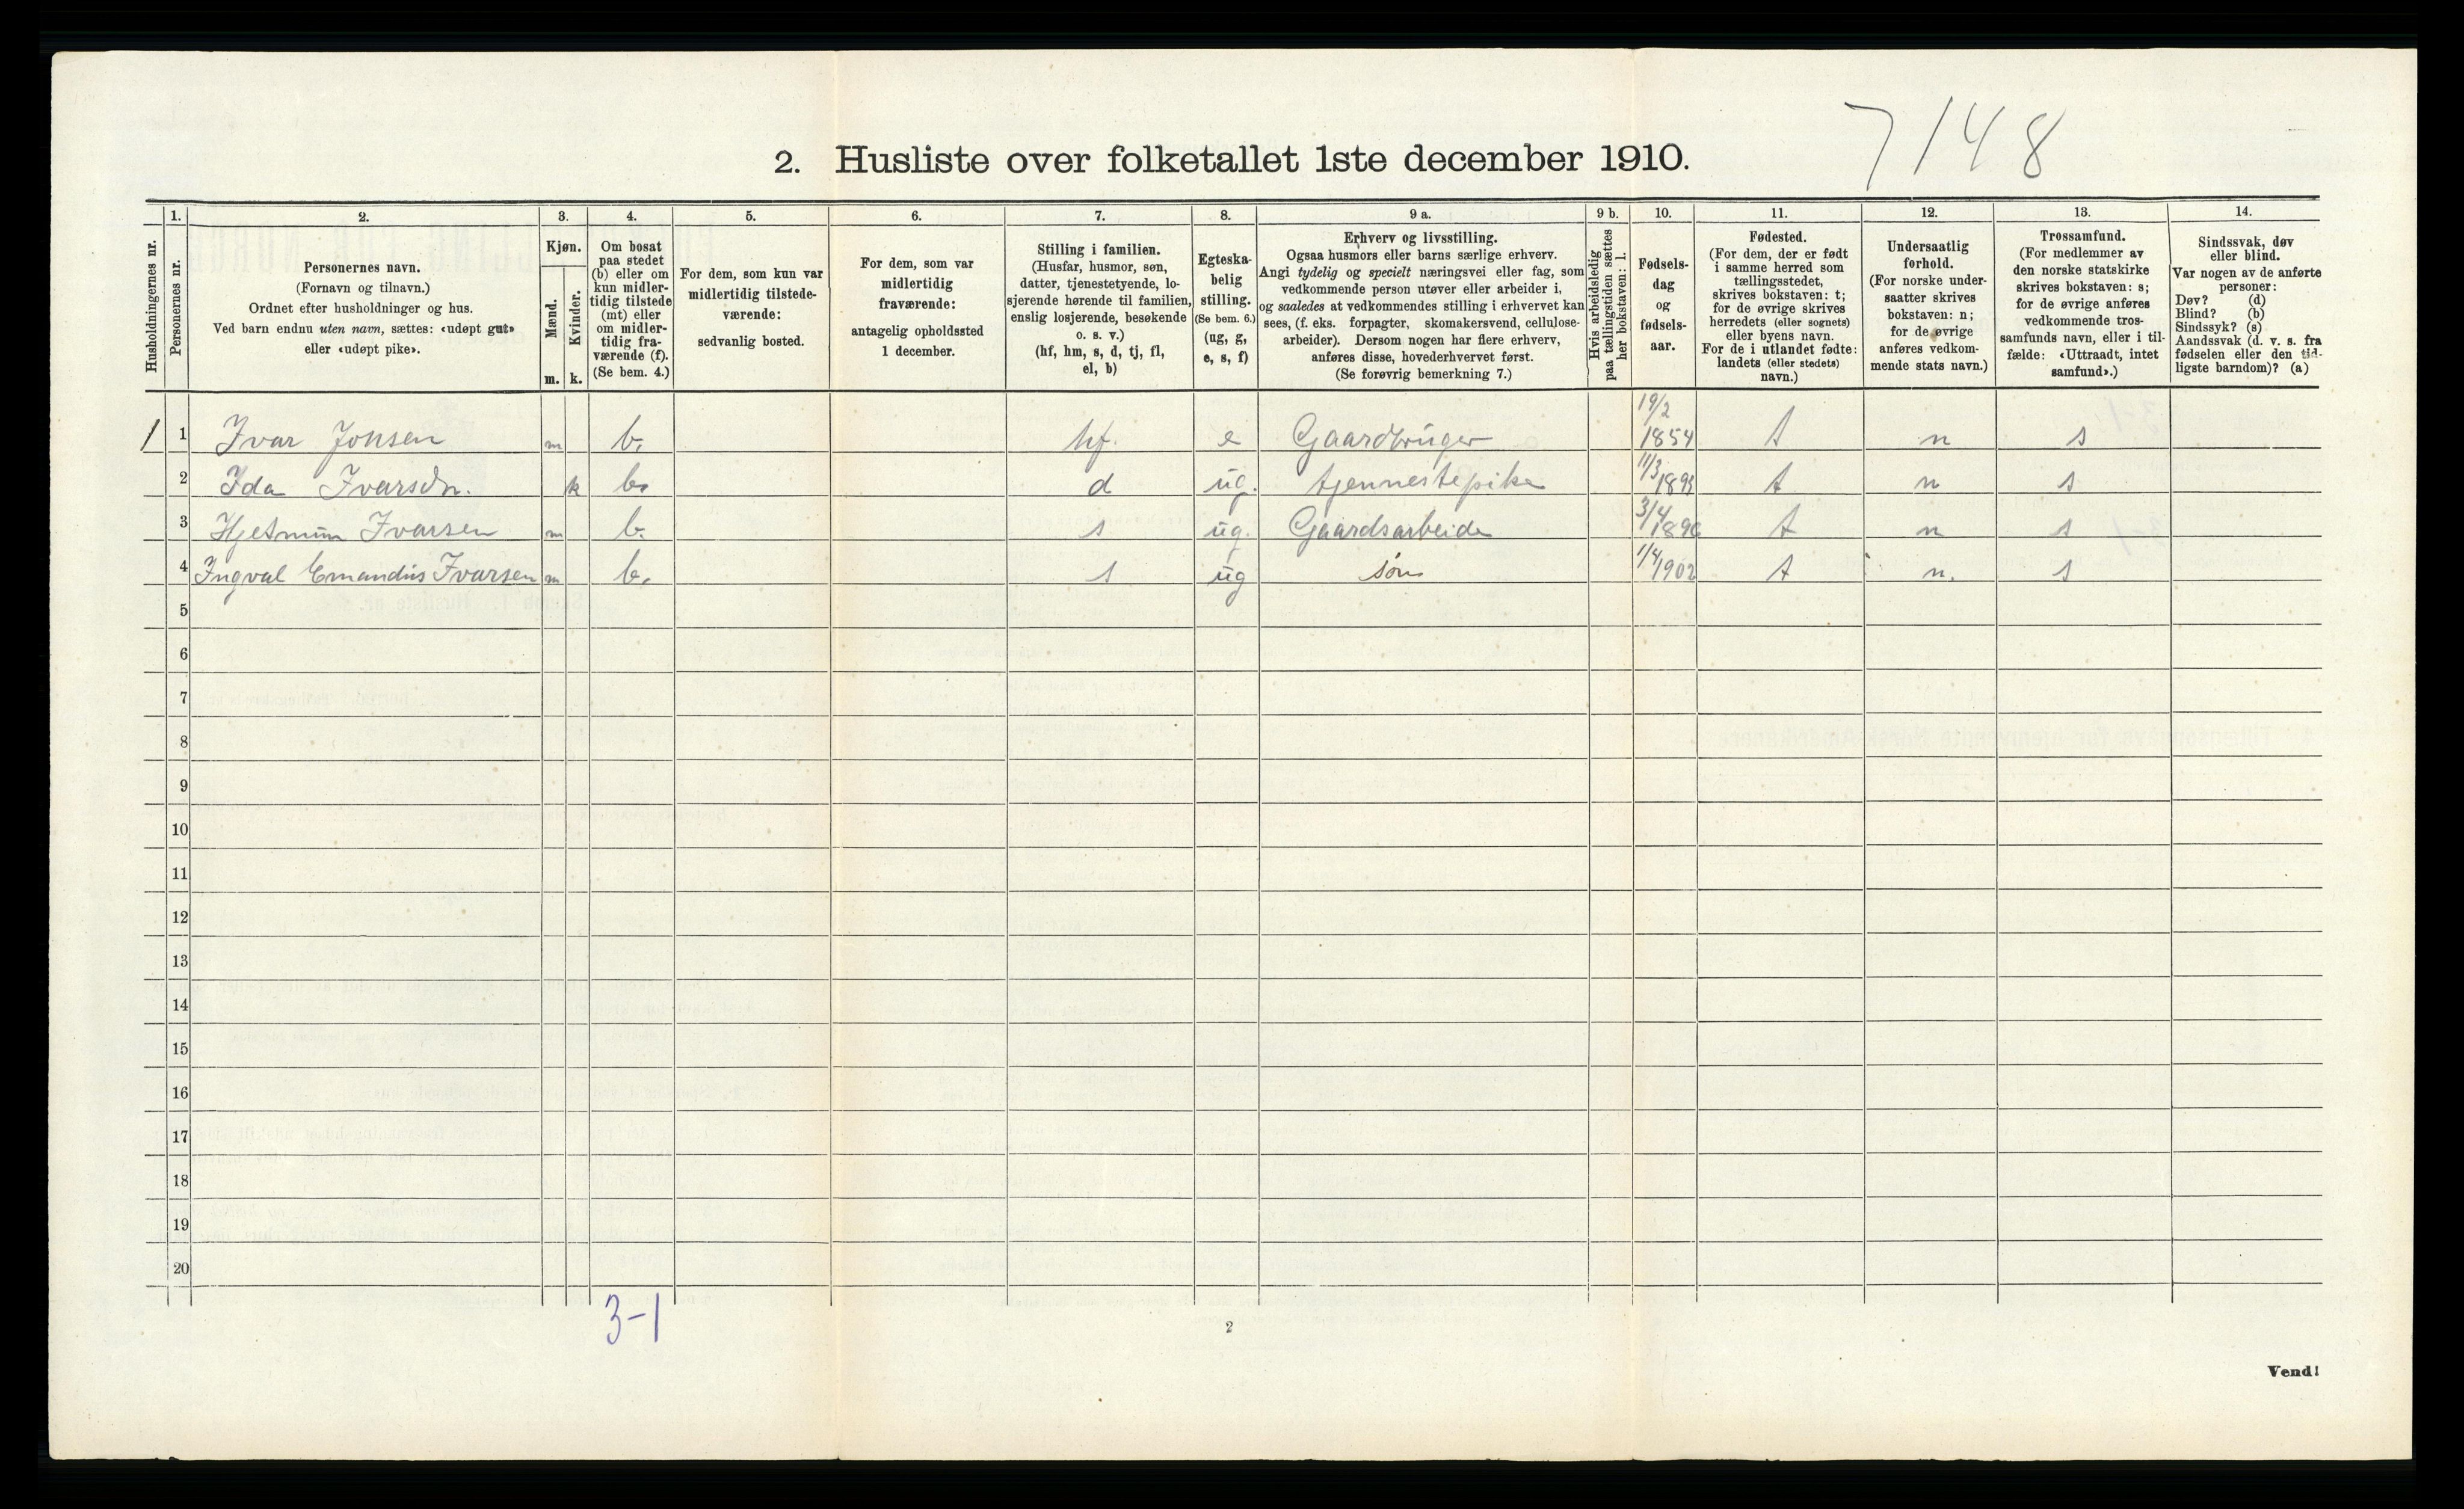 7148
2. Husliste over folketallet 1ste december 1910.
Husholdningernes nr.
1.
Personernes nr.
2.
Personernes navn.
(Fornavn og tilnavn.)
Ordnet efter husholdninger og hus.
Ved barn endnu uten navn, sættes: «udøpt gut»
eller «udøpt pike».
3.
Kjøn.
Mænd.
Kvinder.
m. k.
4.
Om bosat
paa stedet
(b) eller om
kun midler-
tidig tilstede
(mt) eller
om midler-
tidig fra-
værende (f).
(Se bem. 4.)
5.
For dem, som kun var
midlertidig tilstede-
værende:
sedvanlig bosted.
6.
For dem, som var
midlertidig
fraværende:
antagelig opholdssted
1 december.
7.
Stilling i familien.
(Husfar, husmor, søn,
datter, tjenestetyende, lo-
sjerende hørende til familien,
enslig losjerende, besøkende
o. s. v.)
(hf, hm, s, d, tj, fl,
el, b)
8.
Egteska-
belig
stilling.
(Se bem. 6.)
(ug, g,
e, s, f)
9 a.
Erhverv og livsstilling.
Ogsaa husmors eller barns særlige erhverv.
Angi tydelig og specielt næringsvei eller fag, som
vedkommende person utøver eller arbeider i,
og saaledes at vedkommendes stilling i erhvervet kan
sees, (f. eks. forpagter, skomakersvend, cellulose-
arbeider). Dersom nogen har flere erhverv,
anføres disse, hovederhvervet først.
(Se forøvrig bemerkning 7.)
9 b.
Hvis arbeidsledig
paa tællingstiden sættes
her bokstaven: l.
10.
Fødsels-
dag
og
fødsels-
aar.
11.
Fødested.
(For dem, der er født
i samme herred som
tællingsstedet,
skrives bokstaven: t;
for de øvrige skrives
herredets (eller sognets)
eller byens navn.
For de i utlandet fødte:
landets (eller stedets)
navn.)
12.
Undersaatlig
forhold.
(For norske under-
saatter skrives
bokstaven: n;
for de øvrige
anføres vedkom-
mende stats navn.)
13.
Trossamfund.
(For medlemmer av
den norske statskirke
skrives bokstaven: s;
for de øvrige anføres
vedkommende tros-
samfunds navn, eller i til-
fælde: «Uttraadt, intet
samfund».)
14.
Sindssvak, døv
eller blind.
Var nogen av de anførte
personer:
Døv? (d)
Blind? (b)
Sindssyk? (s)
Aandssvak (d. v. s. fra
fødselen eller den tid-
ligste barndom)? (a)
1 1 Ivar Johsen m b. hf. e Gaardbruger 19/2 1854 t n s
2 Ida Ivarsdn. k b. d ug. tjennestepike 11/3 1893 t n s
3 Ivarsen m b. s ug. Gaardsarbeide 3/4 1896 t n s
4 Ingval Emandus Ivarsen m b. s ug søn 1/4 1902 t n. s
5
6
7
8
9
10
11
12
13
14
15
16
17
18
19
20
3-1
2
Vend!